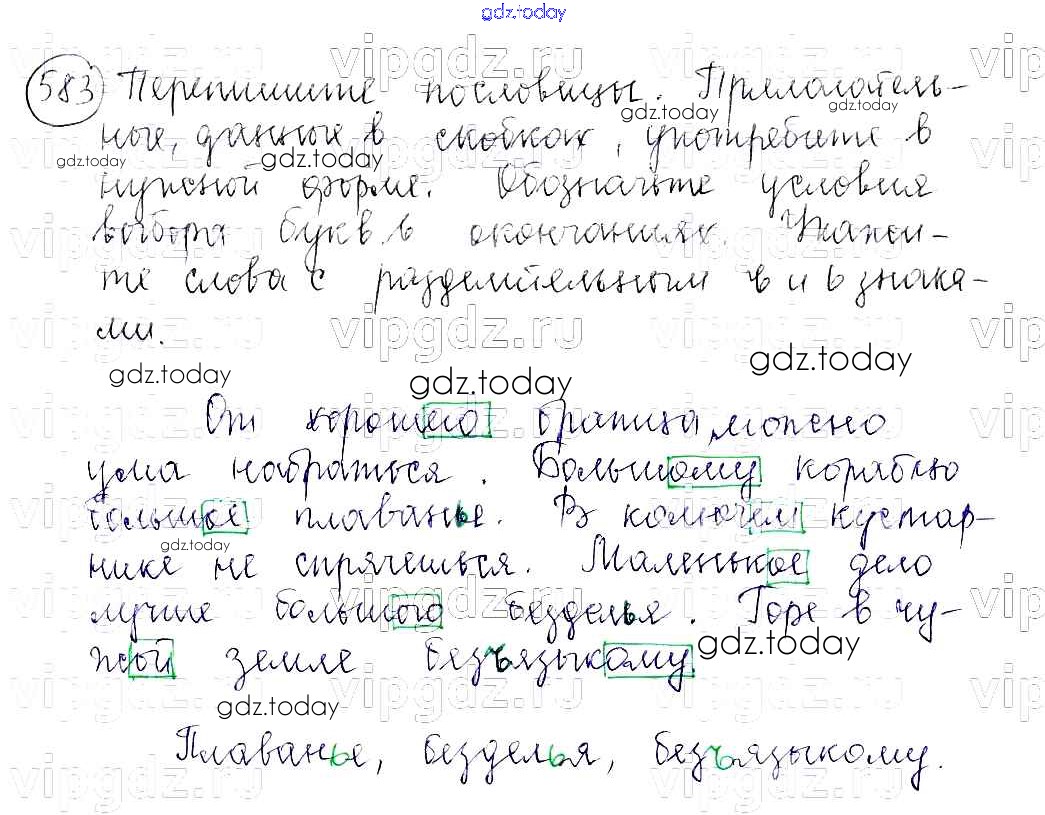 gdz.today
583 Перепишите пословицы. Прилагатель-
ные, данные в скобках, употребите в
нужной форме. Обозначьте условия
выбора букв в окончаниях. Укажи-
те слова с разделительным ъ и ь знака-
ми.
От хорошего братца, можно
ума набраться. Большому кораблю
большое плаванье. В колючем кустар-
нике не спрячешься. Маленькое дело
лучше большого безделья. Горе в чу-
жой земле безъязыкому.
Плаванье, безделья, безъязыкому.